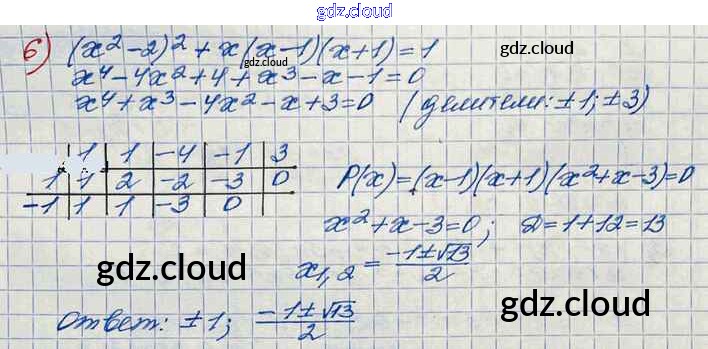 gdz.cloud
б) (x² - 2)² + x(x-1)(x+1) = 1
gdz.cloud
gdz.cloud
x⁴ - 4x² + 4 + x³ - x - 1 = 0
x⁴ + x³ - 4x² - x + 3 = 0 (делители: ±1; ±3)
1 | 1 | -4 | -1 | 3
1 | 1 | 2 | -2 | -3 | 0
-1 | 1 | 1 | -3 | 0
P(x) = (x-1)(x+1)(x²+x-3) = 0
x² + x - 3 = 0; D = 1 + 12 = 13
x₁,₂ = (-1 ± √13)/2
gdz.cloud
gdz.cloud
Ответ: ±1; (-1 ± √13)/2